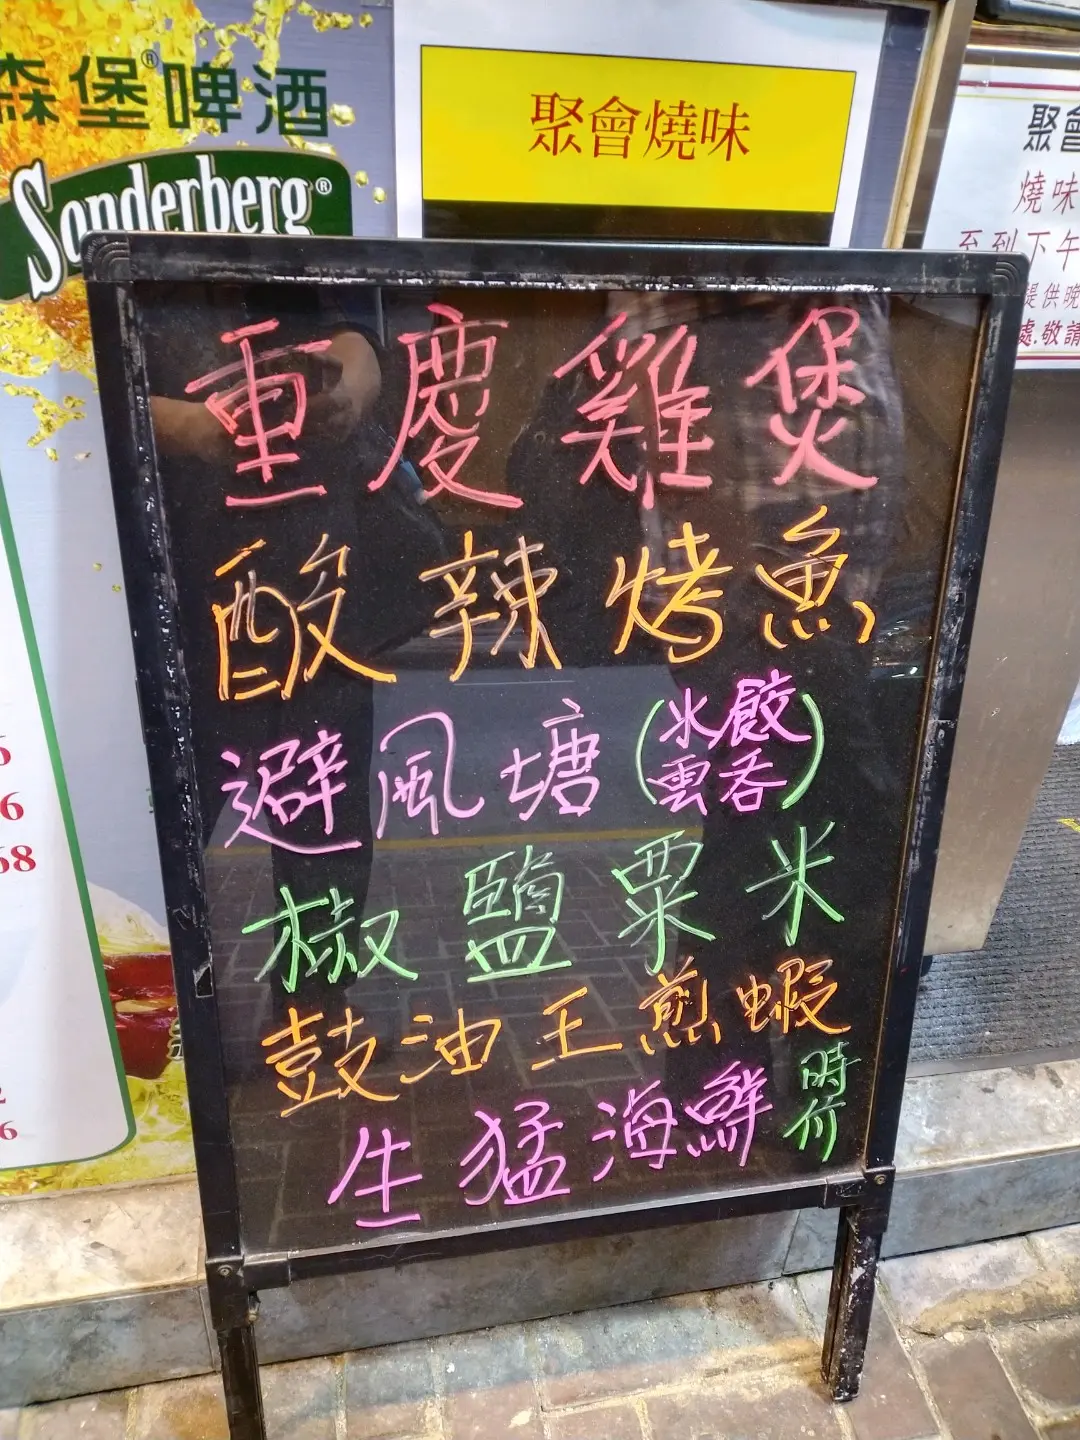 森堡®啤酒
Sonderberg®
聚會燒味
聚會
燒味
至到下午
提供晚
處.敬請
重慶雞煲
酸辣烤魚
避風塘(水餃雲吞)
椒鹽粟米
鼓油王煎蝦
生猛海鮮 時价
6
68
6